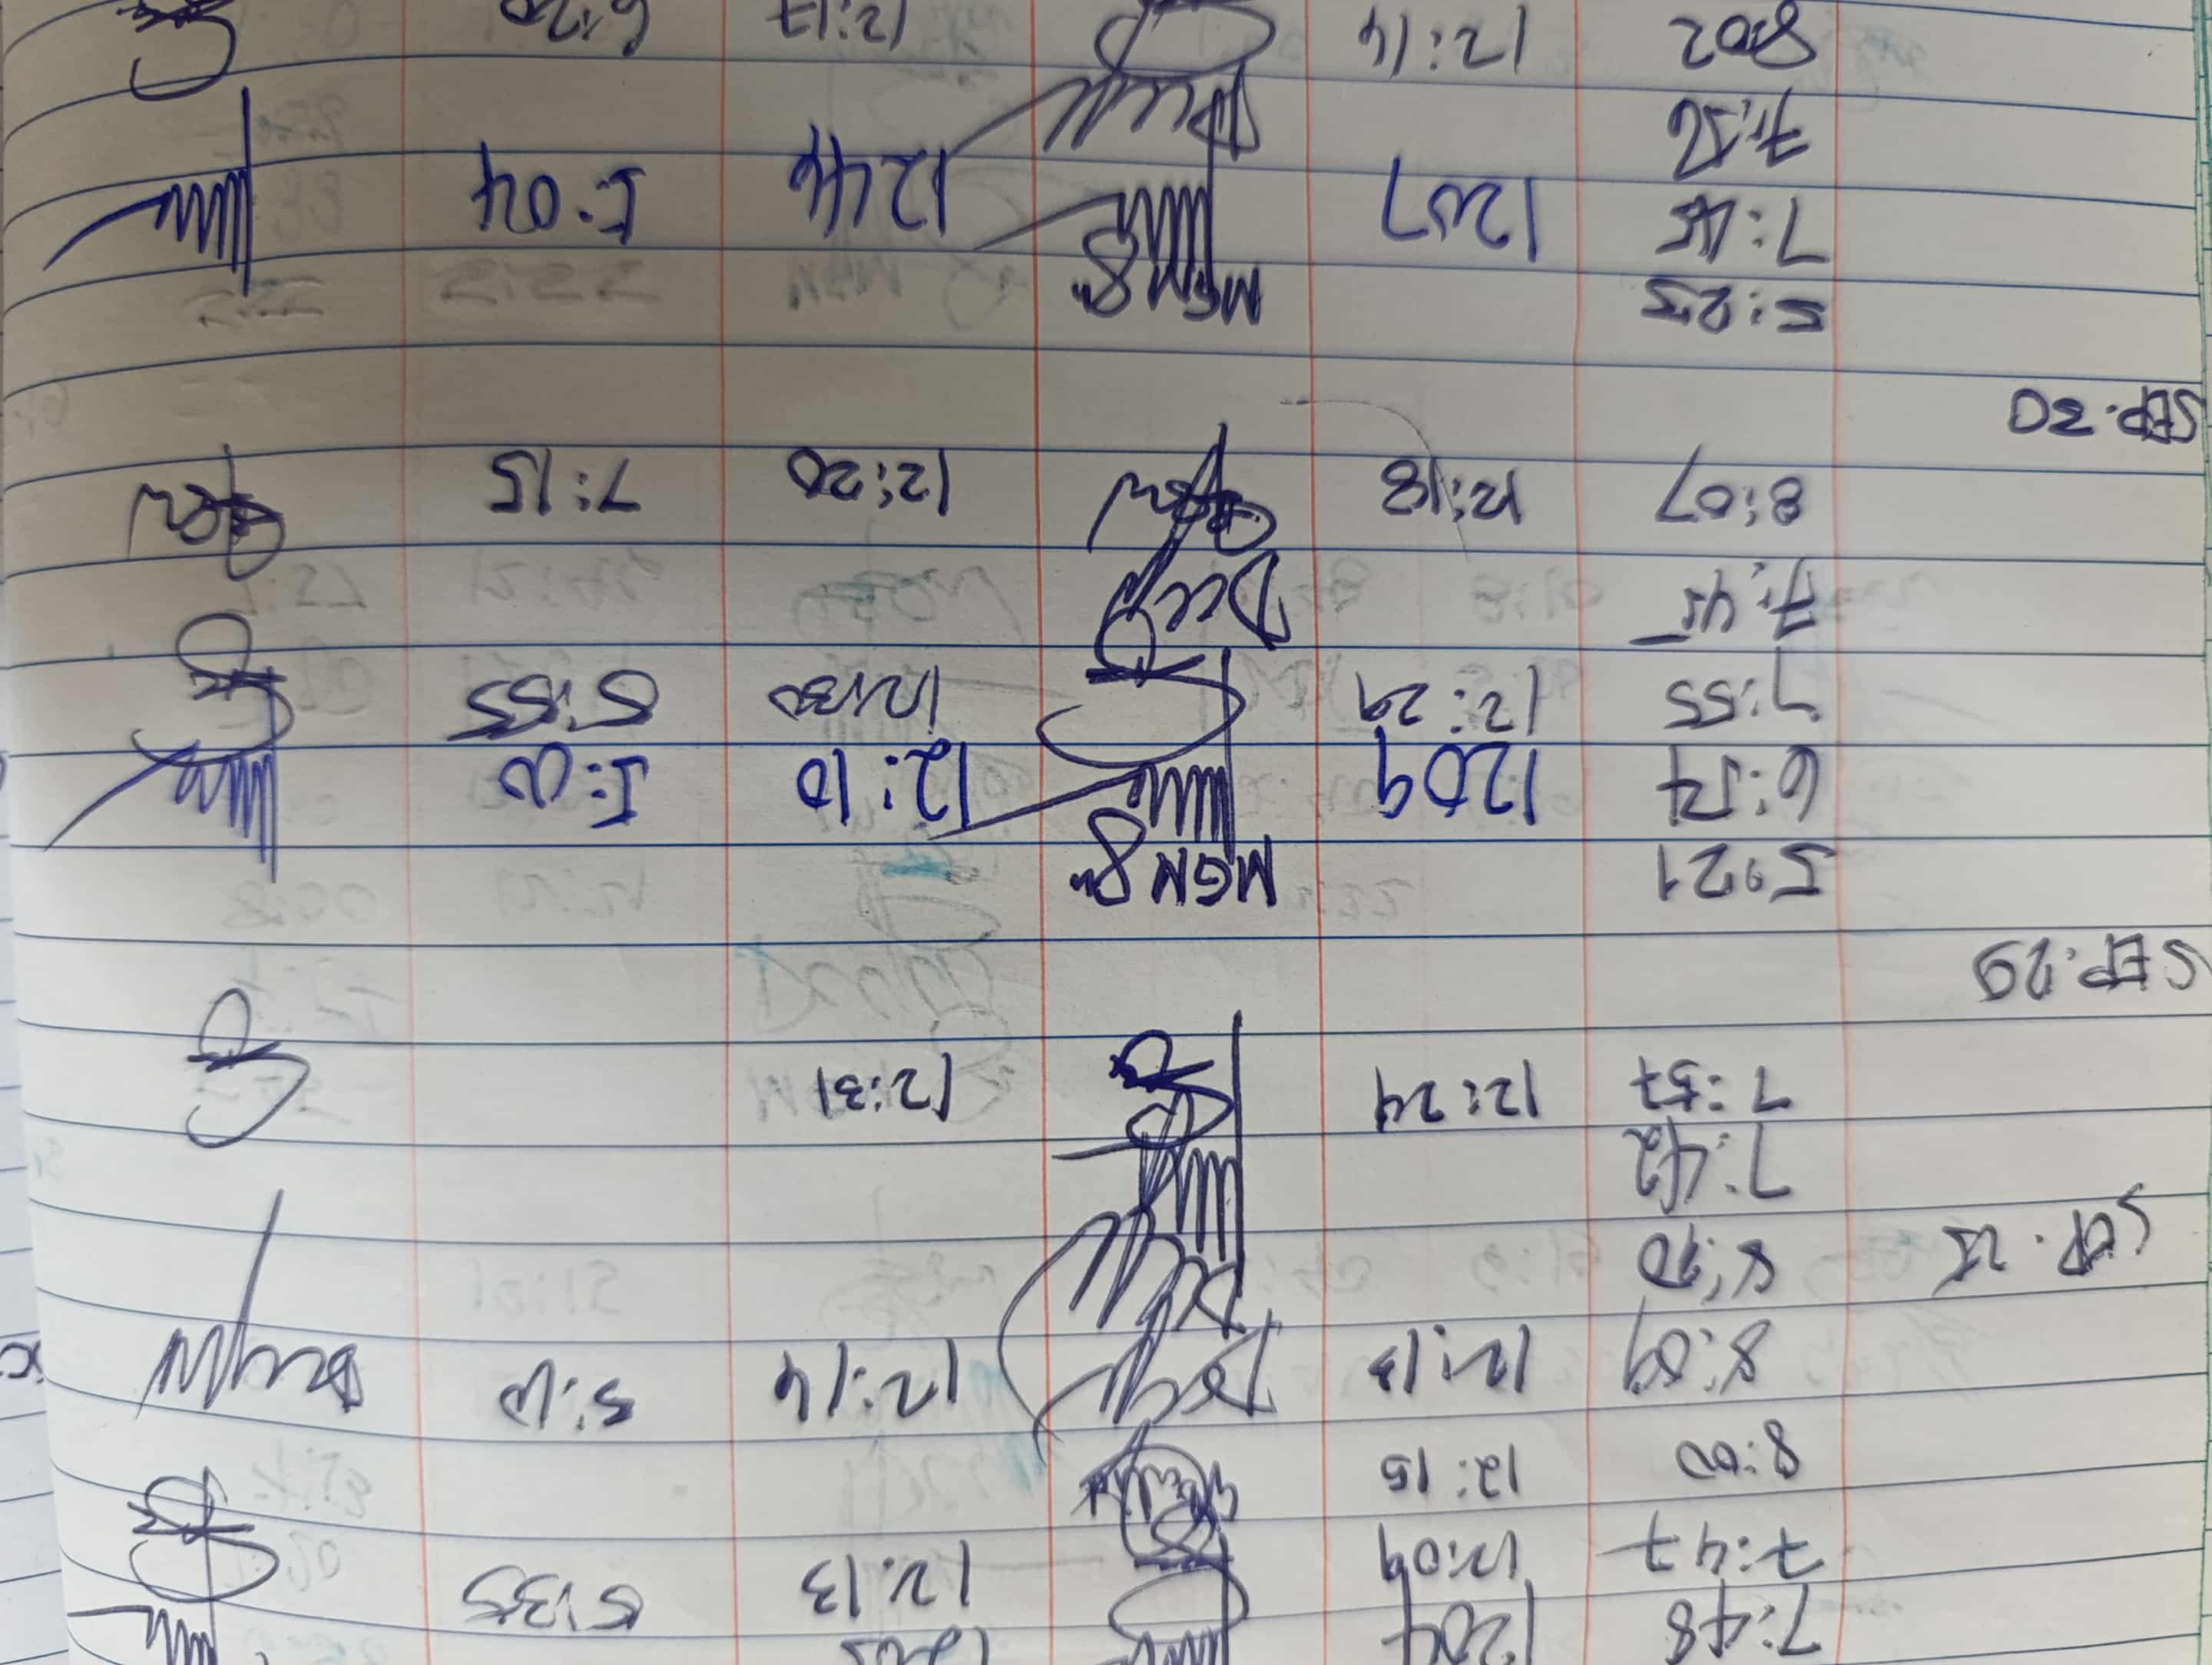 7:48 1204
7:47 12:09 12:13 5:35
8:00 12:15
8:09 12:13 12:14 5:10
SEP. 25 8:10
7:42
7:57 12:24 12:31
SEP. 29
5:21 MGN
6:57 1209 12:10 5:10
7:55 12:29 12:30 5:55
7:45
8:07 12:18 12:20 7:15
SEP. 30
5:25 MGN
7:45 1207 1244 5:04
7:56
8:02 12:14 12:17 6:20